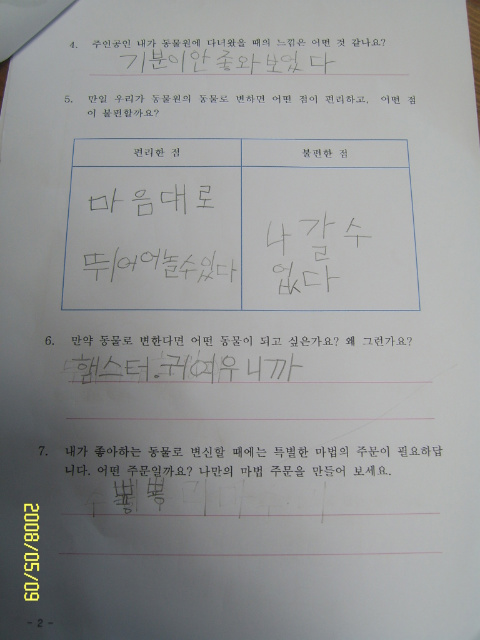 4. 주인공인 내가 동물원에 다녀왔을 때의 느낌은 어떤 것 같나요?
기분이안 좋와보였다
5. 만일 우리가 동물원의 동물로 변하면 어떤 점이 편리하고, 어떤 점
이 불편할까요?
편리한 점
불편한 점
마음대로
뛰어어놀수있다
나갈수
없다
6. 만약 동물로 변한다면 어떤 동물이 되고 싶은가요? 왜 그런가요?
햄스터.귀여우니까
7. 내가 좋아하는 동물로 변신할 때에는 특별한 마법의 주문이 필요하답
니다. 어떤 주문일까요? 나만의 마법 주문을 만들어 보세요.
뿅
2008/05/09
- 2 -